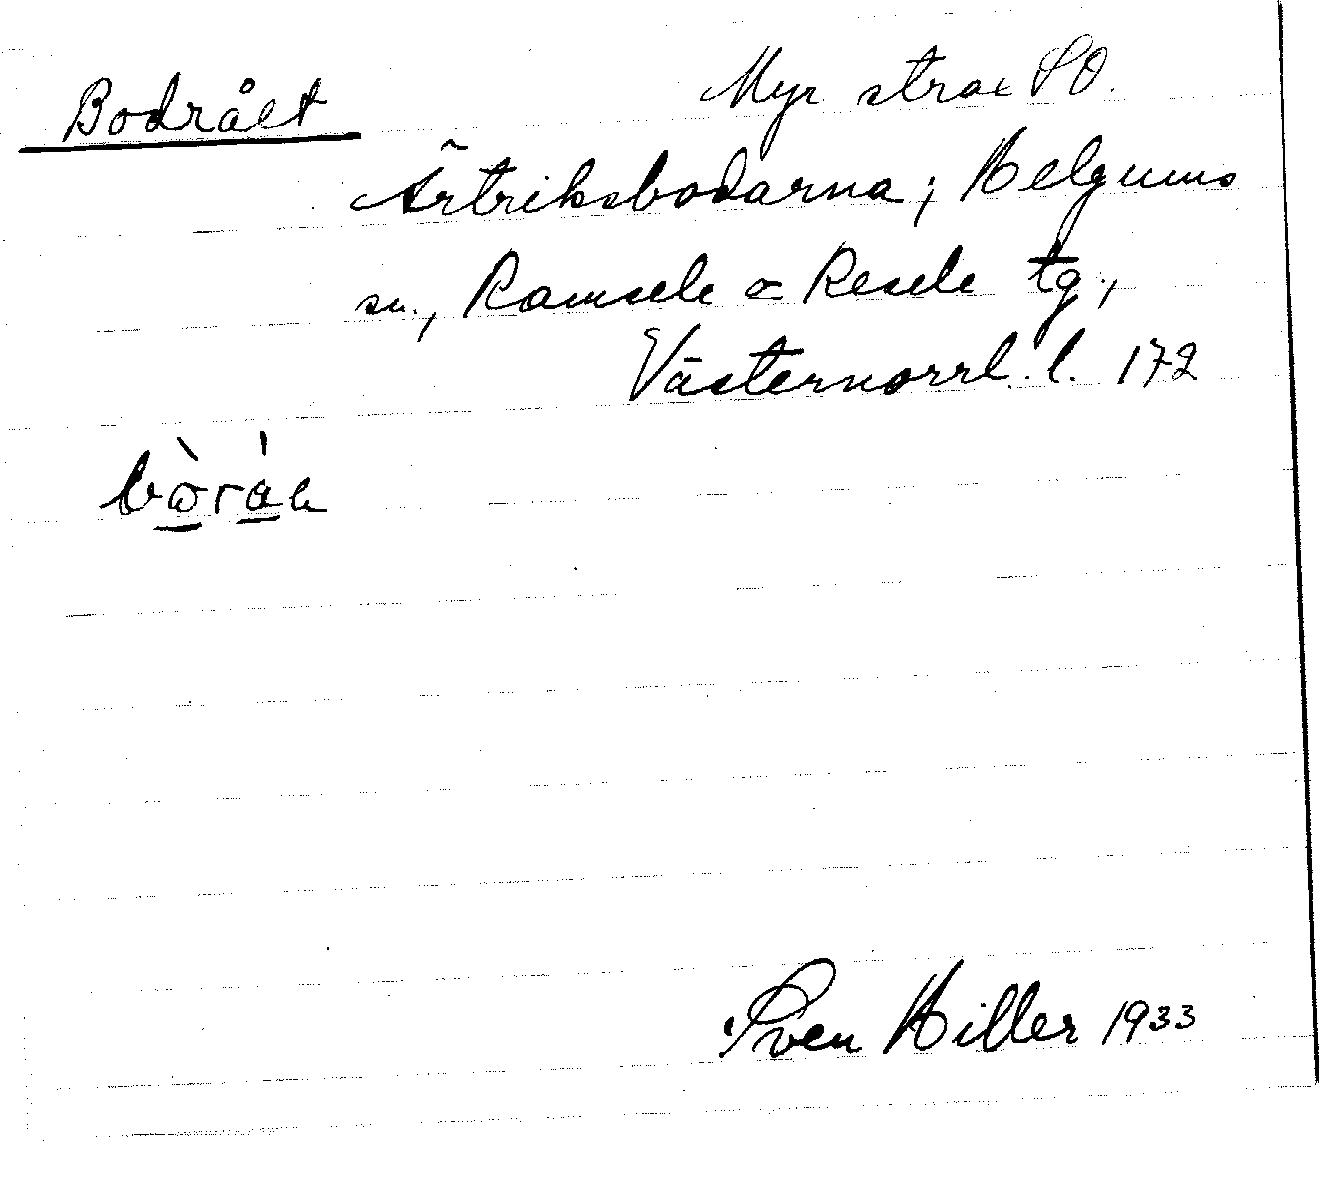 Bodrået
Myr strax SO.
Ärtriksbodarna; Helgums
sn., Ramsele o Resele tg.,
Västernorrl. l. 172
Sven Hiller 1933